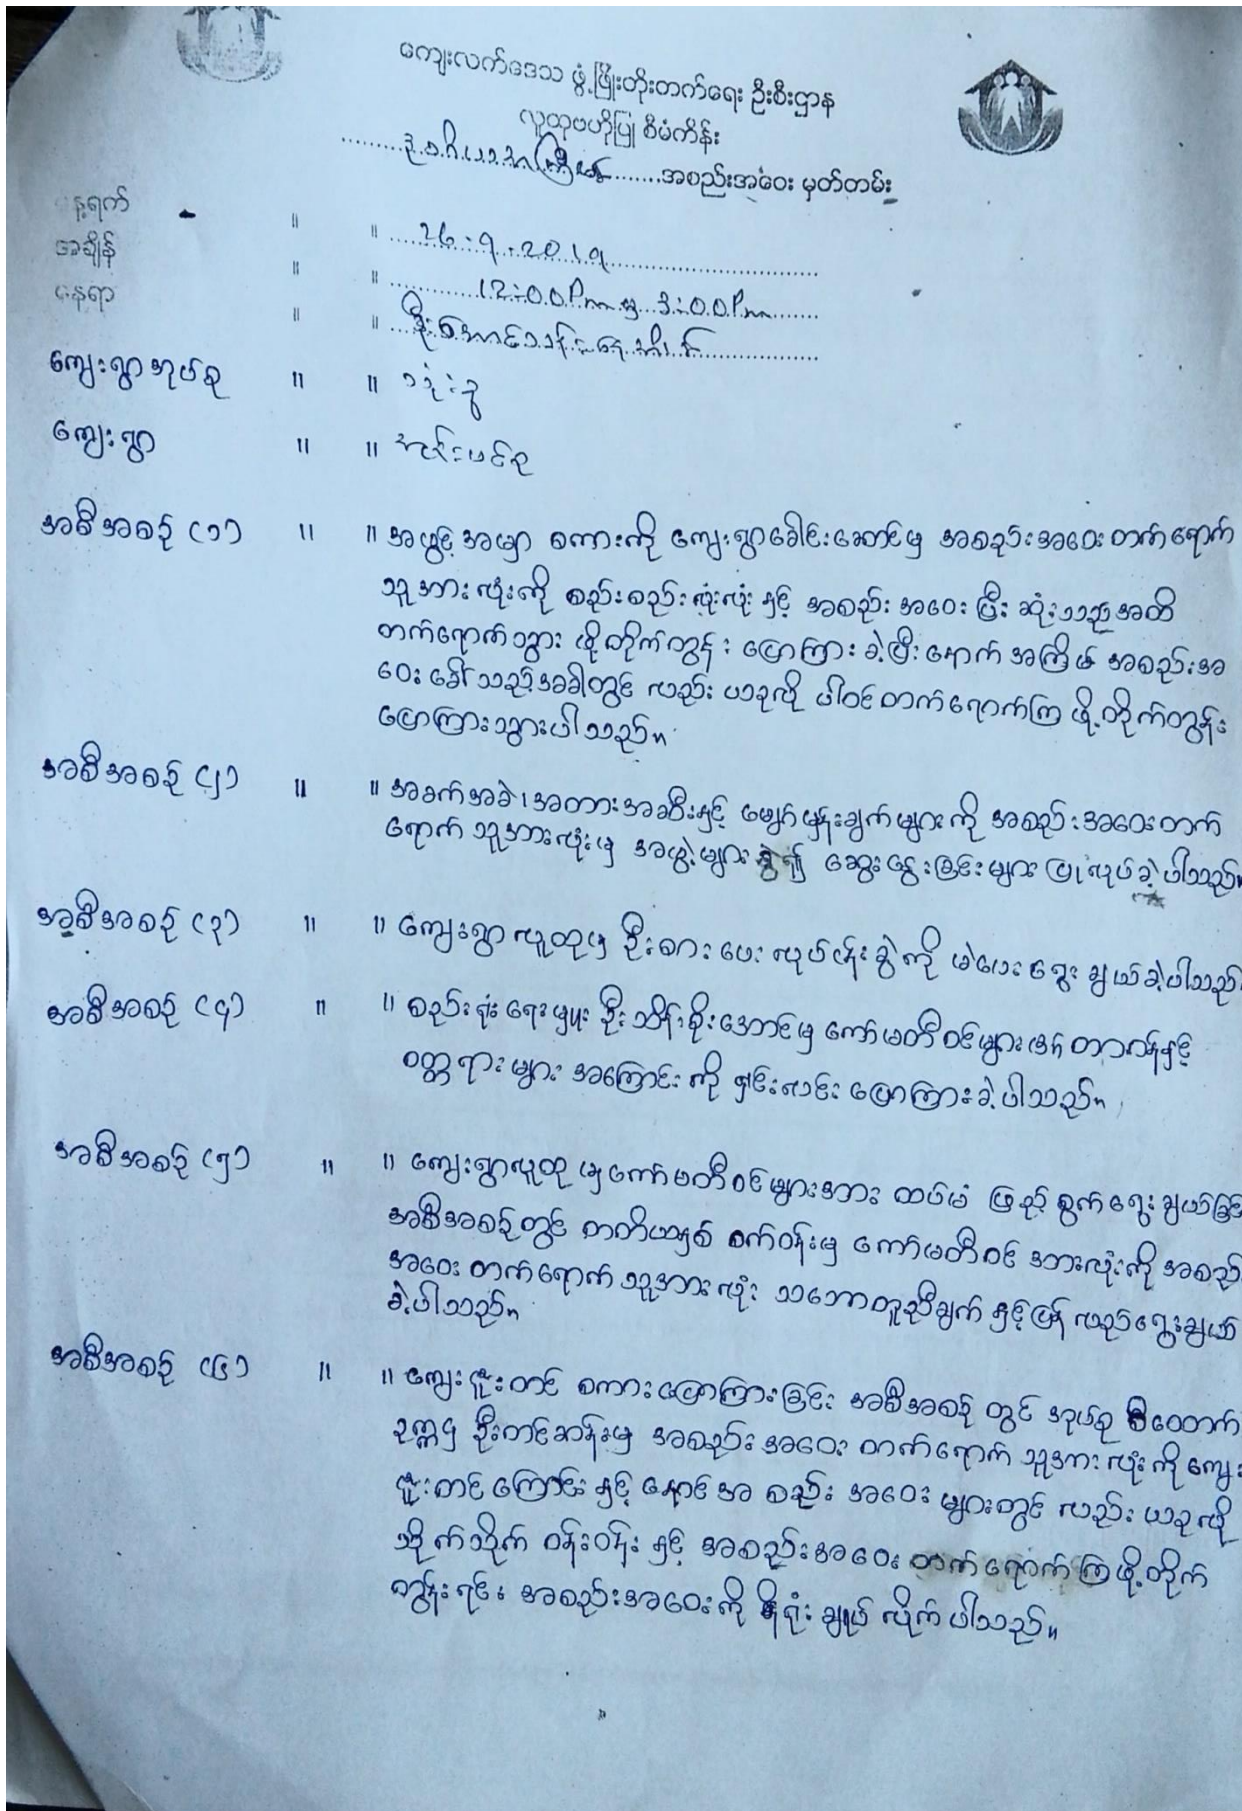 ကျေးလက်ဒေသ ဖွံ့ဖြိုးတိုးတက်ရေး ဦးစီးဌာန
လူထုဗဟိုပြု စီမံကိန်း
ဒုတိယအကြိမ် အစည်းအဝေး မှတ်တမ်း
နေ့ရက် ။ ။ 26.9.2019
အချိန် ။ ။ 12:00Pm မှ 3:00Pm
နေရာ ။ ။ ဦးအောင်သန်းနေအိမ်
ကျေးရွာအုပ်စု ။ ။ သုံးခွ
ကျေးရွာ ။ ။
အစီအစဉ် (၁) ။ ။ အဖွင့် အမှာ စကားကို ကျေးရွာခေါင်းဆောင်မှ အစည်းအဝေး တက်ရောက်
သူအားလုံးကို စည်းစည်းလုံးလုံး နှင့် အစည်း အဝေး ပြီး ဆုံးသည်အထိ
တက်ရောက်သွား ဖို့တိုက်တွန်း ပြောကြား ခဲ့ပြီးနောက် အကြိမ် အစည်းအ
ဝေး ခေါ်သည့်အခါတွင် လည်း ယခုလို ပါဝင်တက်ရောက်ကြ ဖို့တိုက်တွန်း
ပြောကြားသွားပါသည်။
အစီအစဉ် (၂) ။ ။ အခက်အခဲ၊ အတားအဆီးနှင့် မျှော်မှန်းချက်များကို အစည်းအဝေးတက်
ရောက် သူအားလုံးမှ အဖွဲ့များခွဲ၍ ဆွေးနွေးခြင်းများ ပြုလုပ်ခဲ့ပါသည်။
အစီအစဉ် (၃) ။ ။ ကျေးရွာလူထုမှ ဦးစားပေး လုပ်ငန်းခွဲကို မဲပေး ရွေးချယ်ခဲ့ပါသည်
အစီအစဉ် (၄) ။ ။ စည်းရုံးရေးမှူး ဦးသိန်းစိုးအောင်မှ ကော်မတီဝင်များ၏ တာဝန်နှင့်
ဝတ္တရားများ အကြောင်းကို ရှင်းလင်း ပြောကြားခဲ့ပါသည်။
အစီအစဉ် (၅) ။ ။ ကျေးရွာလူထု မှ ကော်မတီဝင်များအား ထပ်မံ ဖြည့်စွက်ရွေးချယ်ခြင်း
အစီအစဉ်တွင် တတိယနှစ် စက်ဝန်းမှ ကော်မတီဝင် အားလုံးကို အစည်း
အဝေး တက်ရောက် သူအားလုံး သဘောတူညီချက် နှင့်ပြန် လည်ရွေးချယ်
ခဲ့ပါသည်။
အစီအစဉ် (၆) ။ ။ ကျေးဇူးတင် စကားပြောကြားခြင်း အစီအစဉ် တွင် အုပ်စု စီထောက်
ဥက္ကဌ ဦးတင်ဆန်းမှ အစည်း အဝေး တက်ရောက် သူအားလုံးကို ကျေး
ဇူးတင်ကြောင်း နှင့် နောင်အစည်း အဝေးများတွင် လည်း ယခုလို
သိုက်သိုက် ဝန်းဝန်း နှင့် အစည်းအဝေး တက်ရောက်ကြဖို့ တိုက်
တွန်းရင်း အစည်းအဝေးကို ရုံးချုပ် လိုက်ပါသည်။